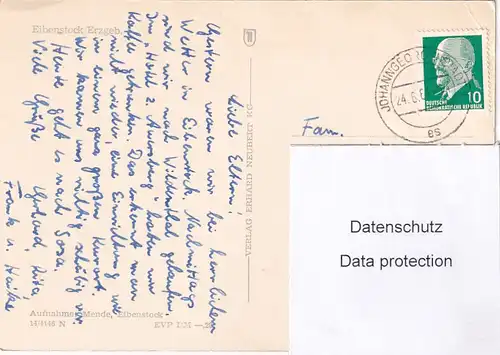 Eibenstock/Erzgeb.
Liebe Eltern!
Gestern waren wir bei herrlichem
Wetter in Eibenstock. Nachmittags
sind wir nach Wildenthal gelaufen.
Im „Hotel z. Auersberg" haben wir
Kaffee getrunken. Das erkennt man
nicht wieder, eine Einrichtung wie
in einem ganz großen Kurort.
Wir kamen uns völlig schäbig vor.
Heute geht es nach Sosa.
Viele Grüße
Gerhard, Rita,
Frank u. Heike
Aufnahme: Mende, Eibenstock
EVP DM
VERLAG ERHARD NEUBERT KG.
JOHANNGEORGENSTADT
24.6.
10
DEUTSCHE
DEMOKRATISCHE REPUBLIK
Fam.
Datenschutz
Data protection